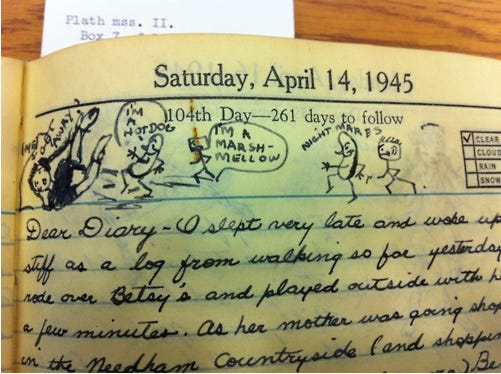 Plath mss. II.
Box 7
Saturday, April 14, 1945
104th Day—261 days to follow
AWAY!
I'M
A
HOT DOG
I'M A
MARSH-
MELLOW
NIGHT MARES
CLEAR
CLOUD
RAIN
SNOW
Dear Diary - I slept very late and woke up
stiff as a log from walking so far yesterday
rode over Betsy's and played outside with h
a few minutes. As her mother was going shop
in the Needham Countryside (and shoppin
Be